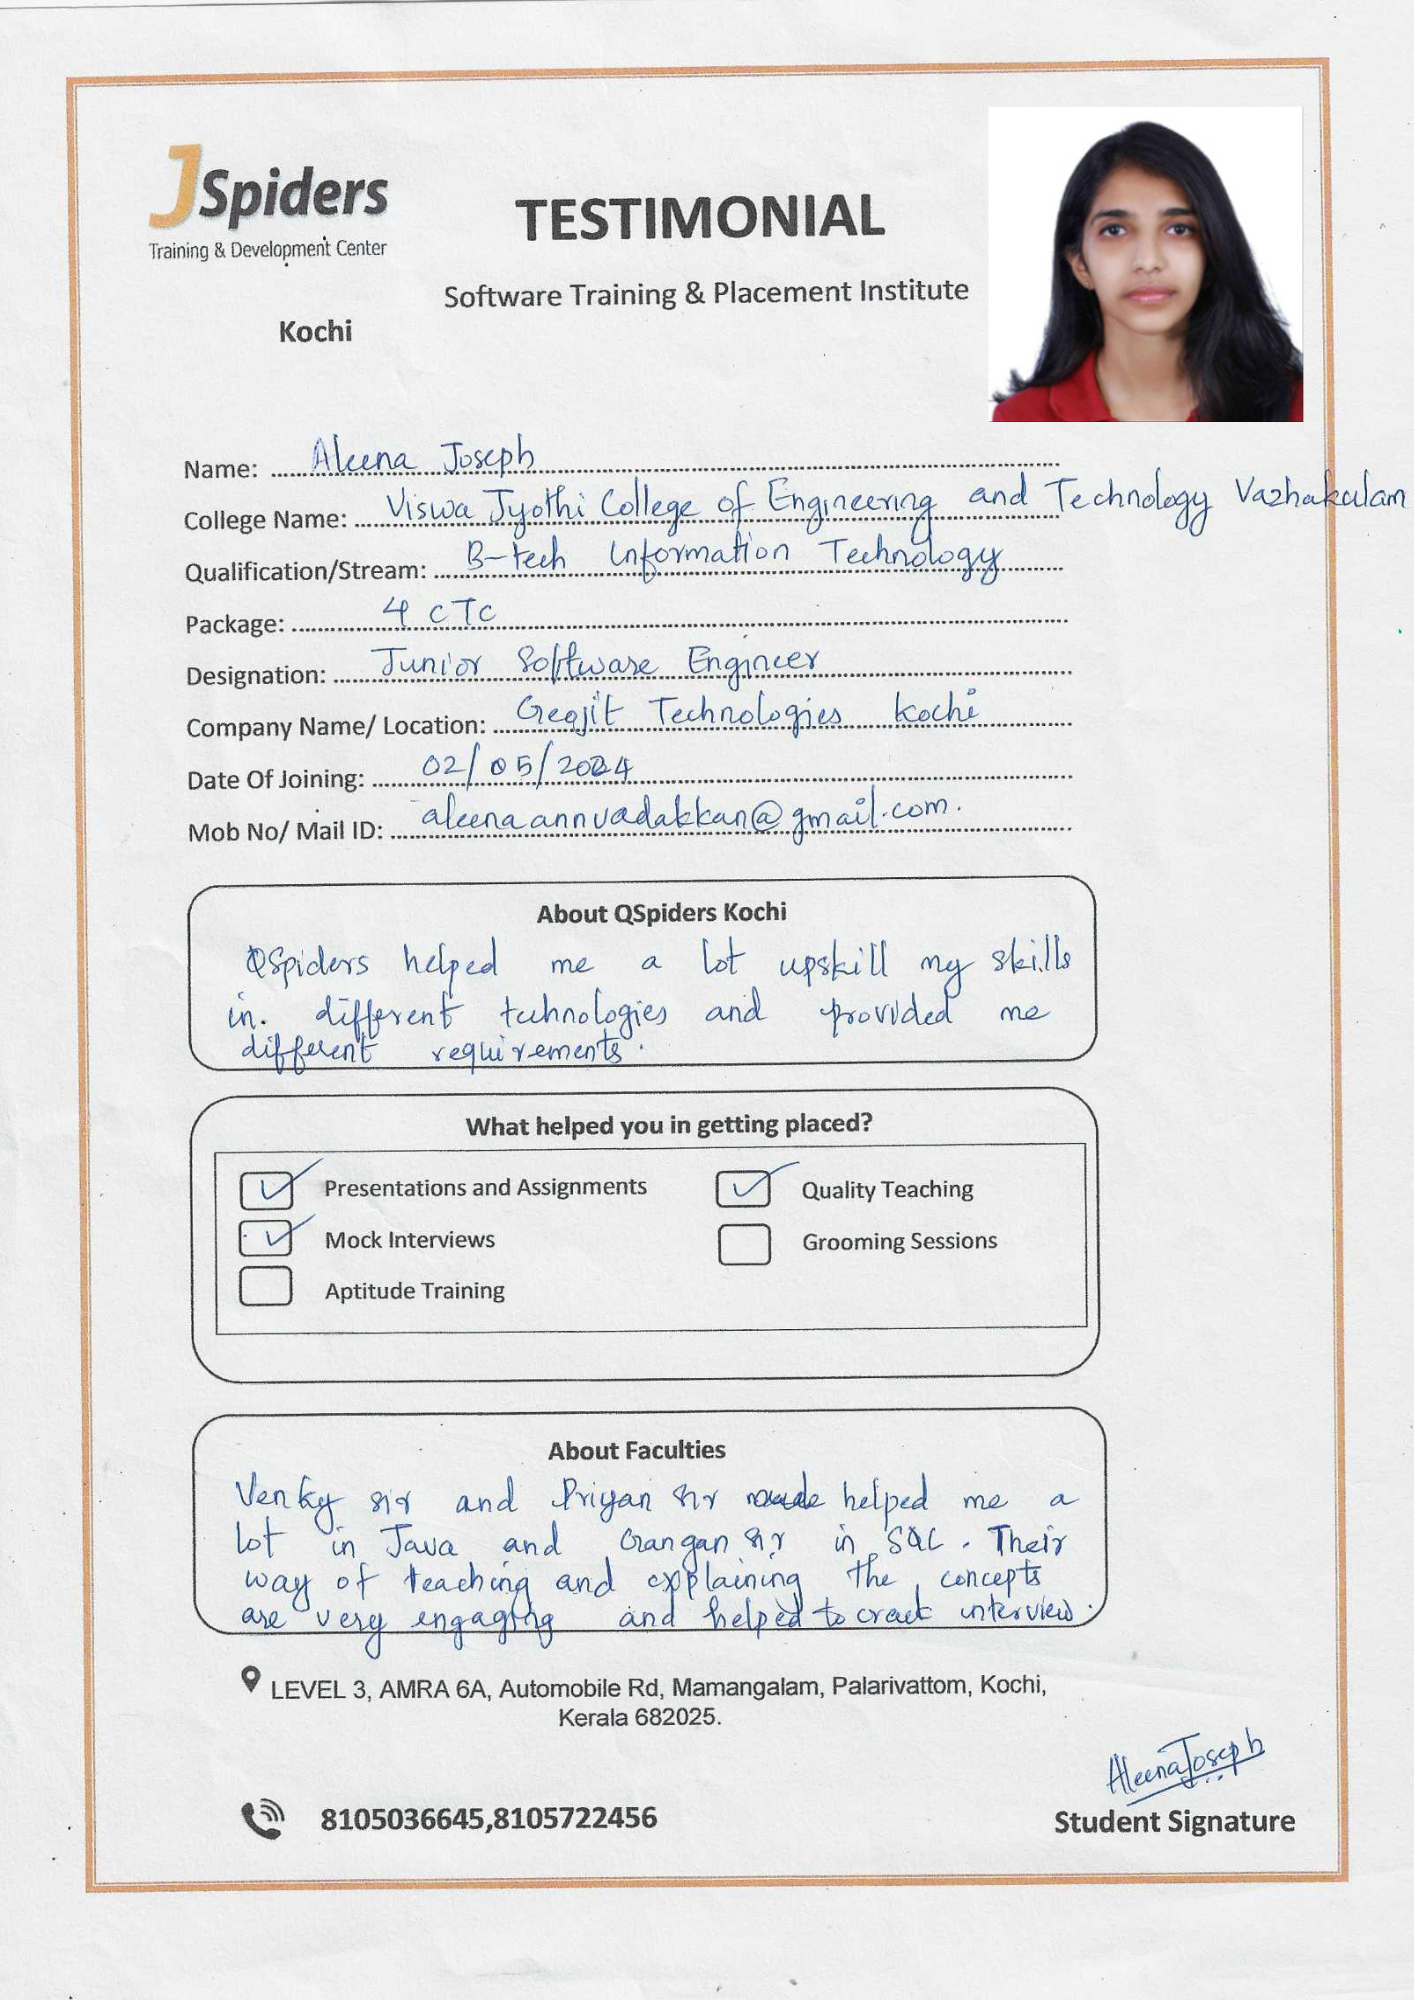 JSpiders
Training & Development Center
TESTIMONIAL
Software Training & Placement Institute
Kochi
Name: Aleena Joseph
College Name: Viswa Jyothi College of Engineering and Technology Vazhakulam
Qualification/Stream: B-tech Information Technology
Package: 4 CTC
Designation: Junior Software Engineer
Company Name/ Location: Geojit Technologies Kochi
Date Of Joining: 02/05/2024
Mob No/ Mail ID: aleenaannvadakkan@gmail.com.
About QSpiders Kochi
QSpiders helped me a lot upskill my skills
in. different technologies and provided me
different requirements.
What helped you in getting placed?
Presentations and Assignments
Quality Teaching
Mock Interviews
Grooming Sessions
Aptitude Training
About Faculties
Venky sir and Priyan sir helped me a
lot in Java and Gangan sir in SQL. Their
way of teaching and explaining the concepts
are very engaging and helped to crack interview.
LEVEL 3, AMRA 6A, Automobile Rd, Mamangalam, Palarivattom, Kochi,
Kerala 682025.
Aleena Joseph
8105036645,8105722456
Student Signature